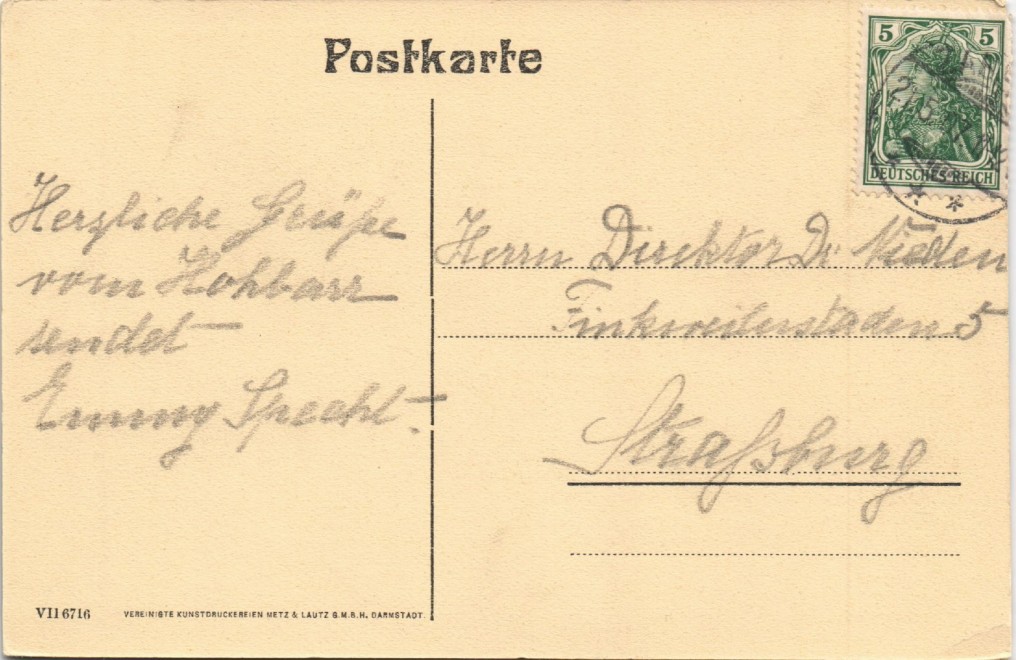 Postkarte
5 5
DEUTSCHES REICH
Herzliche Grüße
vom Hohbarr
sendet
Emmy Specht.
Herrn Direktor Dr. Nieden
Finkweilerstaden 5
Straßburg
VII 6716
VEREINIGTE KUNSTDRUCKEREIEN METZ & LAUTZ G.M.B.H. DARMSTADT.